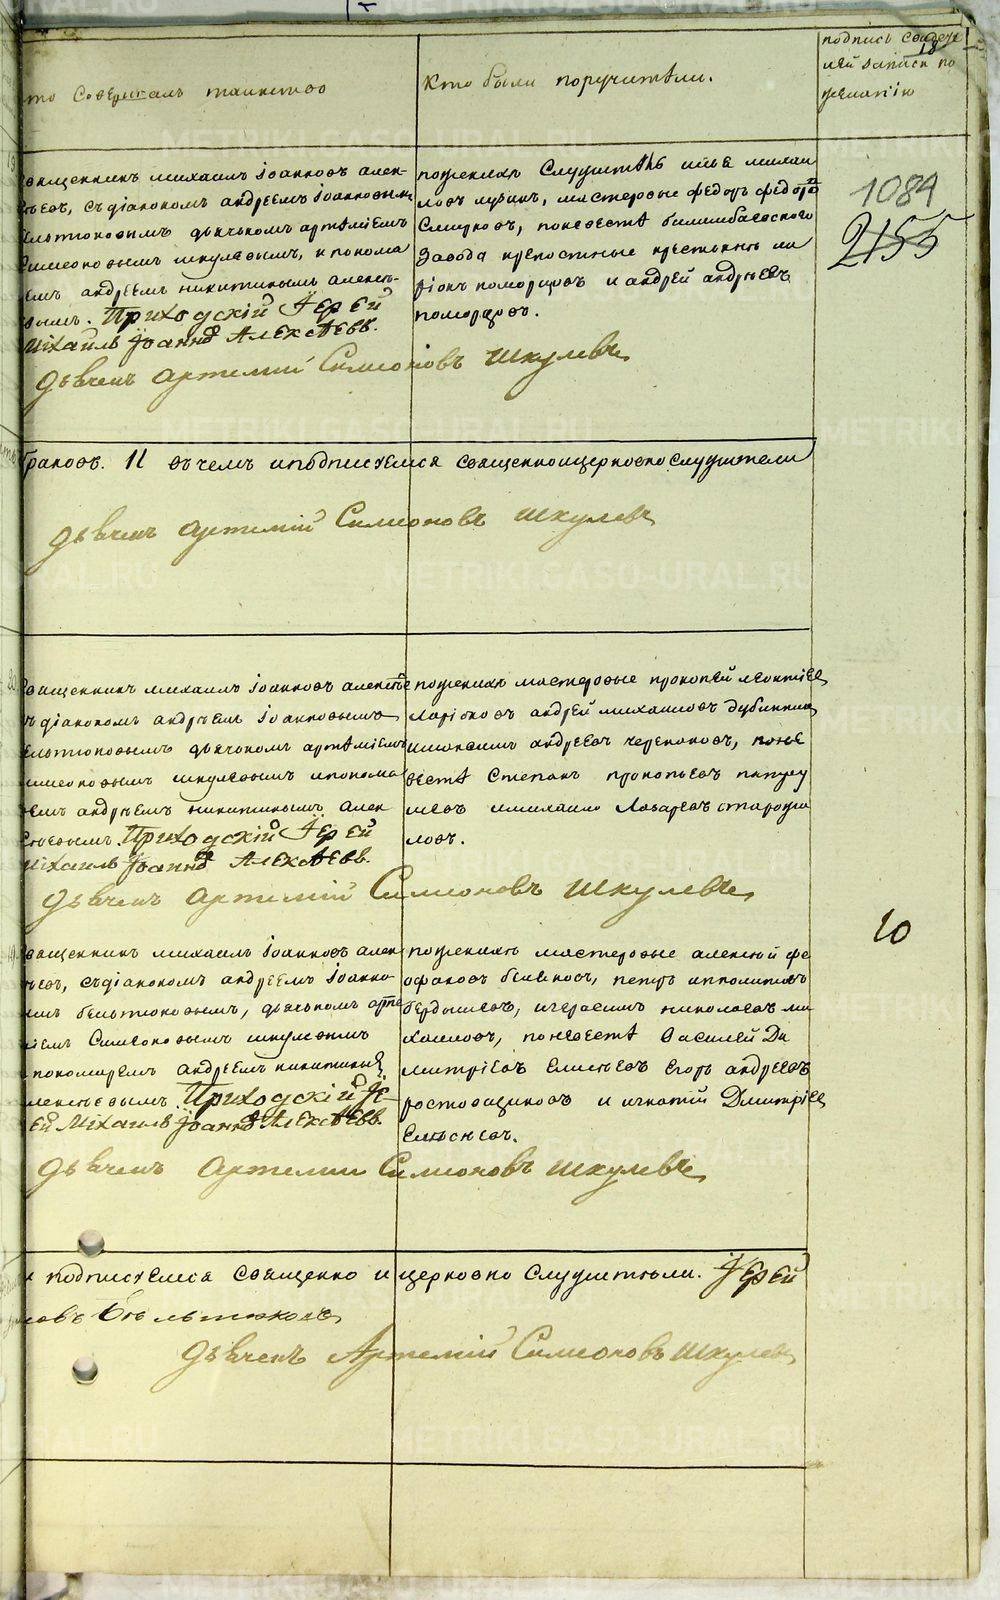 то совершалъ таинство
Кто были поручители.
подпись свидете
лей записи по
желанію
18
священникъ михаилъ іоанновъ алек-
сѣевъ, съ діакономъ андреемъ іоанновым
бельтюковымъ дьячькомъ артѣміемъ
симеоновымъ шкулевымъ, и понома
ремъ андреемъ никитинымъ алексѣ-
вымъ. Приходскій Іерей
Михаилъ Іоанновъ Алексѣевъ.
Дьячекъ Артемій Симеоновъ Шкулевъ
по женихѣ служитѣль илья михаи
ловъ, мастеровые федоръ федоро
по невестѣ билимбаевскаго
завода крепостные крестьянѣ ла
ріонъ поморцовъ и андрей андрѣевъ
поморцовъ.
1084
2155
браковъ. 11 въ чемъ и подписуемся священно и церковно служители
Дьячекъ Артемій Симеоновъ Шкулевъ
священникъ михаилъ іоанновъ алексѣе
съ діакономъ андрѣемъ іоанновымъ
бельтюковымъ дьячкомъ артѣміемъ
симеоновымъ шкулевымъ и понома
ремъ андрѣемъ никитинымъ алек
сѣевымъ. Приходскій Іерей
Михаилъ Іоанновъ Алексѣевъ.
Дьячекъ Артемій Симеоновъ Шкулевъ
по женихѣ мастеровые прокопей леонтіев
ларіоновъ андрей михаиловъ дубинин
и максимъ андреевъ черепановъ, по не
вестѣ степанъ прокопьевъ
и михаило лазаревъ
ловъ.
священникъ михаилъ іоанновъ алек
сѣевъ, съ діакономъ андреемъ іоанно
вымъ бельтюковымъ, дьячкомъ арте
міемъ симеоновымъ шкулевымъ
и пономаремъ андреемъ никитинымъ
алексѣевымъ Приходскій Іе-
рей Михаилъ Іоанновъ Алексѣевъ.
Дьячекъ Артемии Симеоновъ Шкулевъ
по женихѣ мастеровые алексѣй фе
офановъ петръ ипполитовъ
бердышевъ, и герасимъ николаевъ ми
хаиловъ, по невестѣ василей ди
митріевъ елисѣевъ егоръ андреевъ
ростовщиковъ и игнатій димитріев
елисѣевъ.
10
и подписуемся священно и церковно служители. Іерей
новъ Бѣльтюковъ
Дьячекъ Артемій Симеоновъ Шкулевъ
METRIKI.GASO-URAL.RU